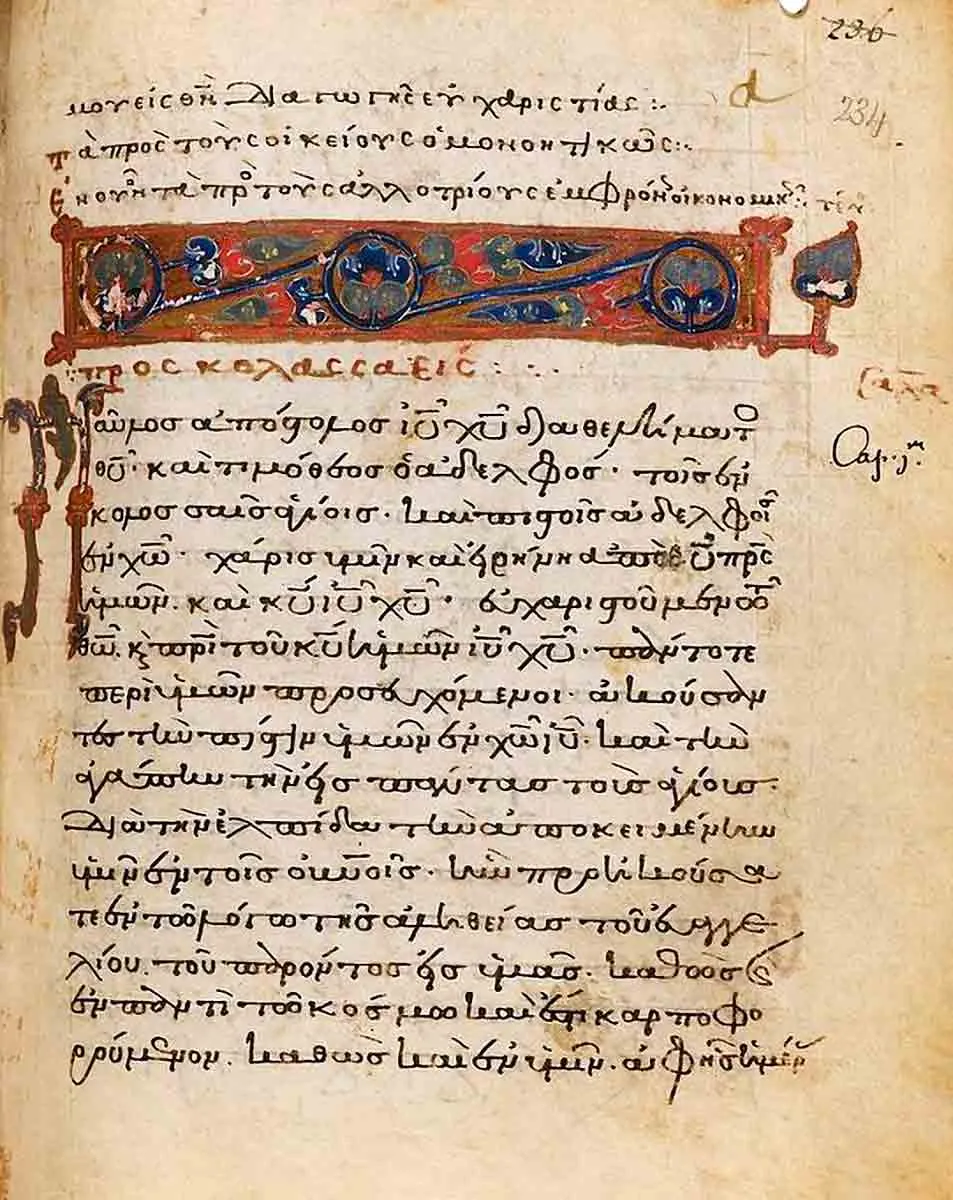 236
α
234
μου εἰς θν̅ διαγωγῆς εὐχαριστίας :·
τὰ πρὸς τοὺς οἰκείους ὁμονοητικῶς :·
τὰ πρὸ τοὺς ἀλλοτρίους
προς κολασσαεις :
Παῦλος ἀπόστολος ἰυ̅ χυ̅ διὰ θελήματο
θυ̅· καὶ τιμόθεος ὁ ἀδελφός· τοῖς ἐν
κολοσσαῖς ἁγίοις· καὶ πιστοῖς ἀδελφοῖ
ἐν χω̅· χάρις ὑμῖν καὶ εἰρήνη ἀπὸ θυ̅ πρς̅
ἡμῶν. καὶ κυ̅ ἰυ̅ χυ̅· εὐχαριστοῦμεν τῶ
θω̅. κ πρι̅ τοῦ κυ̅ ἡμῶν ἰυ̅ χυ̅· πάντοτε
περὶ ὑμῶν προσευχόμενοι· ἀκούσαν
τες τὴν πίστιν ὑμῶν ἐν χω̅ ἰυ̅· καὶ τὴν
ἀγάπην τὴν εἰς πάντας τοὺς ἁγίους·
Διὰ τὴν ἐλπίδα τὴν ἀποκειμένην
ὑμῖν ἐν τοῖς οὐνοῖς· ἣν προηκούσα
τε ἐν τῶ λόγω τῆς ἀληθείας τοῦ εὐαγγε
λίου. τοῦ παρόντος εἰς ὑμᾶς· καθὼς
ἐν παντὶ τῶ κόσμω καὶ ἔστι καρποφο
ρούμενον. καθὼς καὶ ἐν ὑμῖν. ἀφ ἧς ἡμέρ
Cap. 1m.